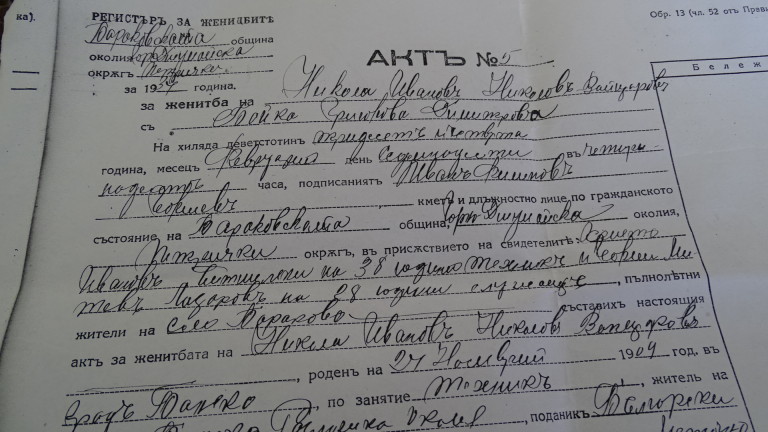 ка).
РЕГИСТЪРЪ ЗА ЖЕНИДБИТѢ
Обр. 13 (чл. 52 отъ Прави
Бараковската община
околия Г. Джумайска
окржгъ Петрички
за 1934 година.
АКТЪ № 5
Бележ
за женитба на Никола Ивановъ Николовъ Вапцаровъ
съ Бойка Димитрова
На хиляда деветстотинъ тридесетъ и четвърта
година, месецъ Февруарий день въ четири-
надесетъ часа, подписаниятъ Иванъ Филиповъ
, кметъ и длъжностно лице по гражданското
състояние на Бараковската община, Горно Джумайска околия,
Петрички окржгъ, въ присѫствието на свидетелитѣ: Христо
Ивановъ на 38 години техникъ и Ми-
тевъ Лазаровъ на 28 години , пълнолѣтни
жители на село Бараково съставихъ настоящия
актъ за женитбата на Никола Ивановъ Николовъ Вапцаровъ
, роденъ на 24 Ноемврий 1909 год. въ
градъ Банско, по занятие техникъ, житель на
околия, поданикъ Български